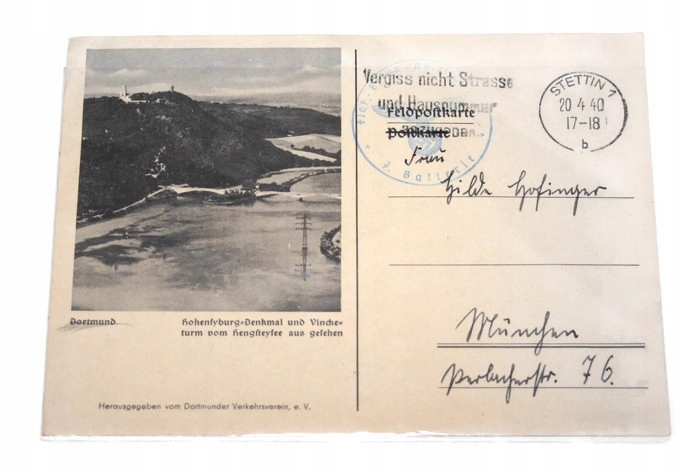 Dortmund
Hohensyburg-Denkmal und Vincke-
turm vom Hengsteysee aus gesehen
Herausgegeben vom Dortmunder Verkehrsverein, e. V.
Vergiss nicht Strasse
und Hausnummer
Feldpostkarte
Postkarte
STETTIN 1
20 4 40
17-18
b
Batterie
Frau
Hilde Hofinger
München
Perlacherstr. 76.